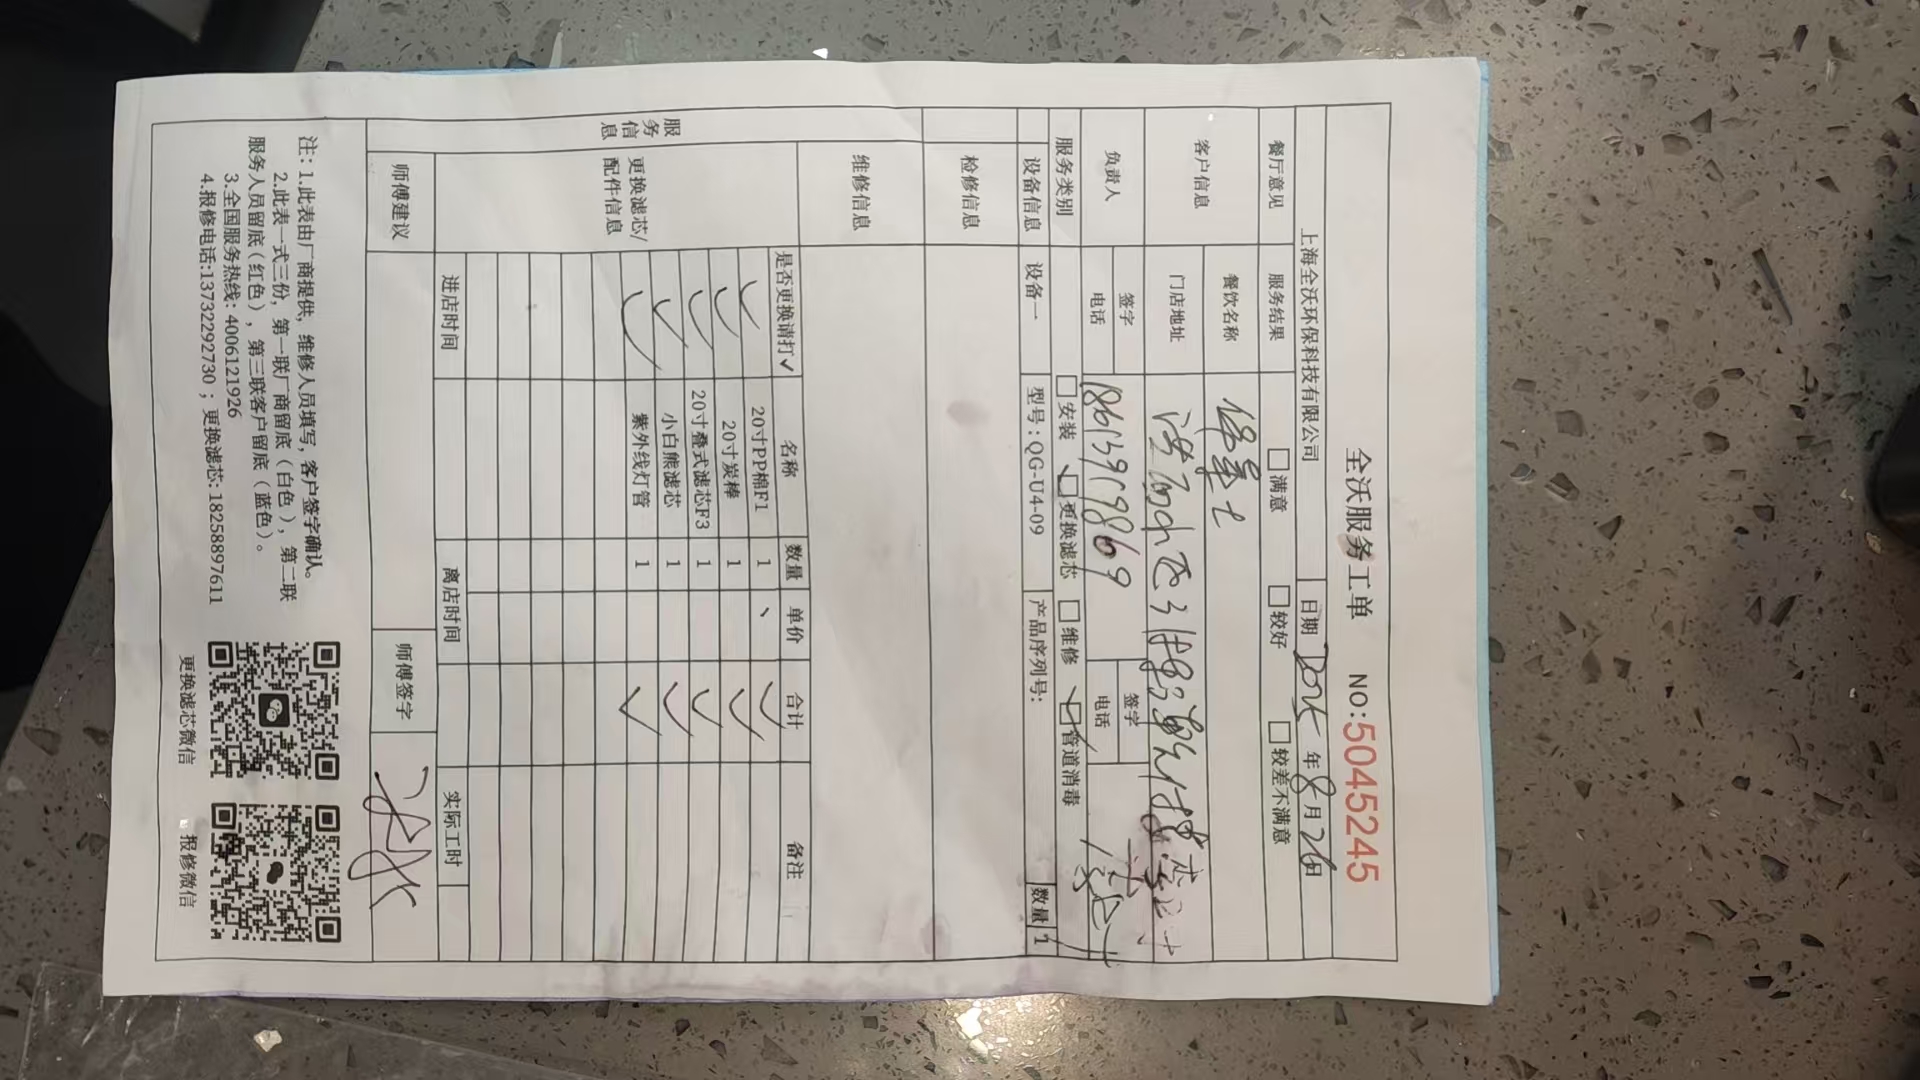 全沃服务工单 NO:5045245
上海全沃环保科技有限公司 日期 年8月26日
餐厅意见 服务结果 □满意 □较好 □较差不满意
客户信息 餐饮名称
门店地址
负责人 签字 签字
电话 18613919869 电话
服务类别 □安装 □更换滤芯 □维修 □管道消毒
设备信息 设备一 型号:QG-U4-09 产品序列号: 数量 1
检修信息
维修信息
服务信息
更换滤芯/配件信息
是否更换请打✓ 名称 数量 单价 合计 备注
✓ 20寸PP棉F1 1 ✓
✓ 20寸炭棒 1 ✓
✓ 20寸叠式滤芯F3 1 ✓
✓ 小白熊滤芯 1 ✓
✓ 紫外线灯管 1 ✓
进店时间 离店时间 实际工时
师傅建议 师傅签字
注:1.此表由厂商提供,维修人员填写,客户签字确认。
2.此表一式三份,第一联厂商留底(白色),第二联
服务人员留底(红色),第三联客户留底(蓝色)。
3.全国服务热线:4006121926
4.报修电话:13732292730;更换滤芯:18258897611
更换滤芯微信 报修微信